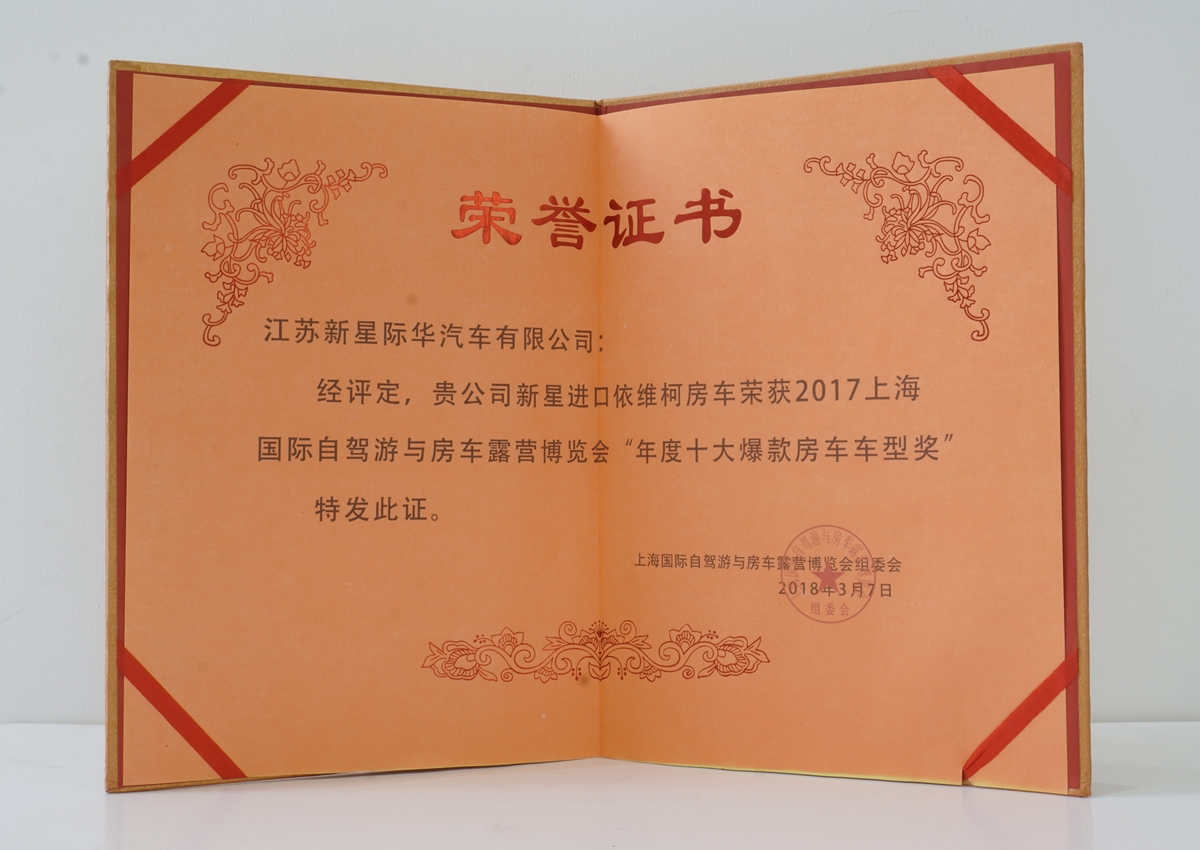 荣誉证书
江苏新星际华汽车有限公司：
经评定，贵公司新星进口依维柯房车荣获2017上海
国际自驾游与房车露营博览会“年度十大爆款房车车型奖”
特发此证。
上海国际自驾游与房车露营博览会组委会
2018年3月7日
组委会